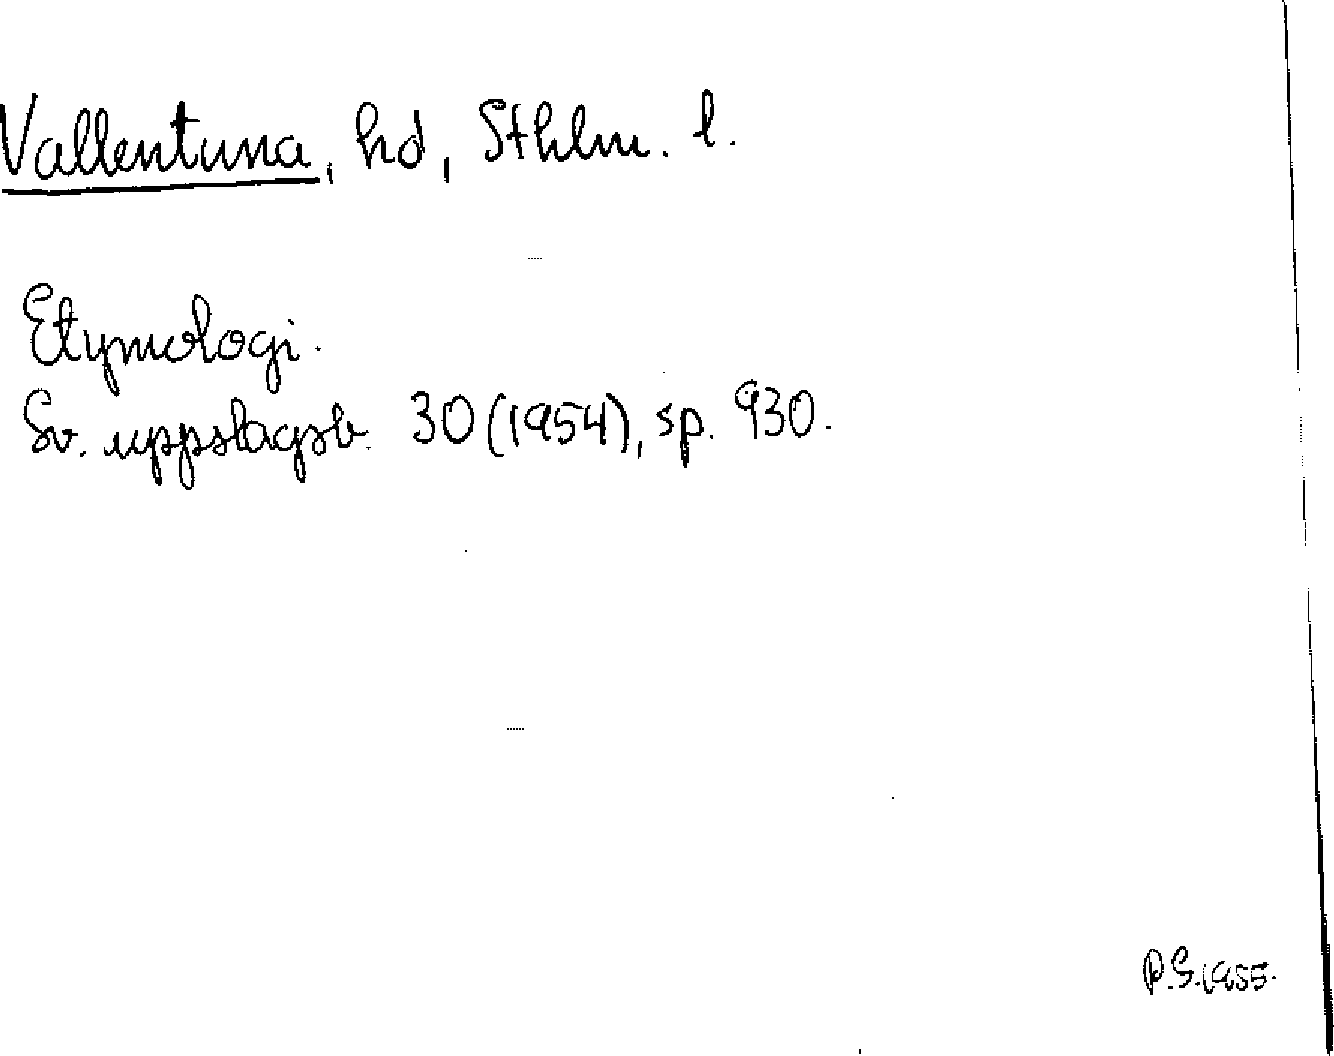 Vallentuna, hd, Sthlm. l.
Etymologi.
Sv. uppslagsb. 30 (1954), sp. 930.
P.S. 1955.